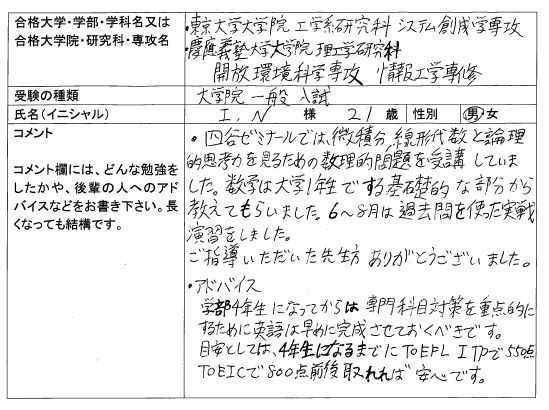 合格大学・学部・学科名又は
合格大学院・研究科・専攻名
・東京大学大学院 工学系研究科 システム創成学専攻
・慶應義塾大学大学院 理工学研究科
開放環境科学専攻 情報工学専修
受験の種類
大学院 一般 入試
氏名(イニシャル)
I, N 様 21 歳 性別 男・女
コメント
コメント欄には、どんな勉強を
したかや、後輩の人へのアド
バイスなどをお書き下さい。長
くなっても結構です。
・四谷ゼミナールでは、微積分、線形代数と論理
的思考力を見るための数理的問題を受講していま
した。数学は大学1年生でする基礎的な部分から
教えてもらいました。6~8月は過去問を使った実戦
演習をしました。
ご指導いただいた先生方ありがとうございました。
・アドバイス
学部4年生になってからは専門科目対策を重点的に
するために英語は早めに完成させておくべきです。
目安としては、4年生になるまでにTOEFL ITPで550点
TOEICで800点前後取れれば安心です。